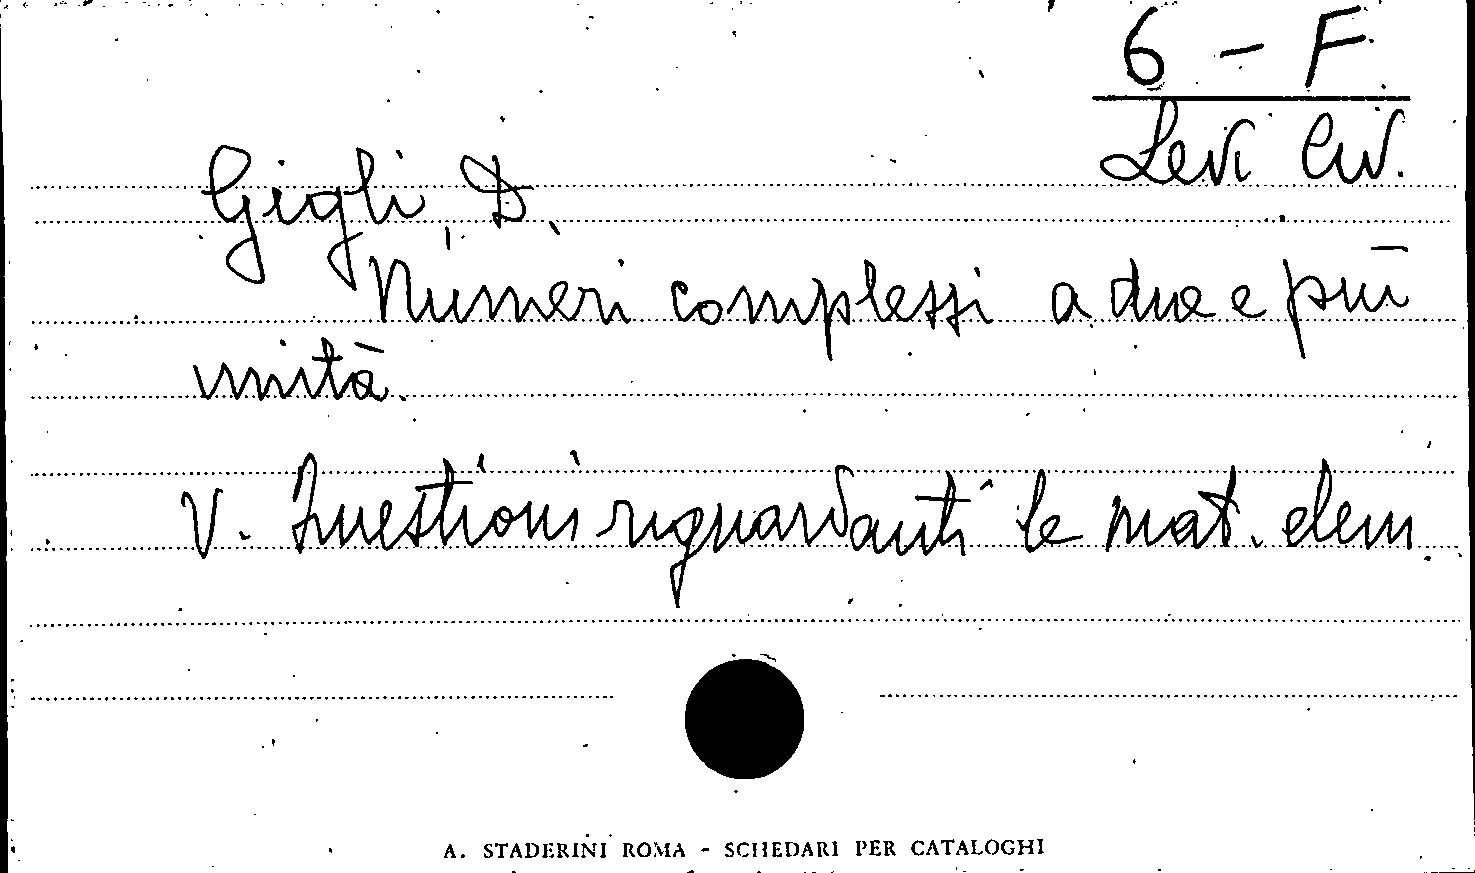 6 - F
Levi Civ.
Gigli, D.
Numeri complessi a due e più
unità.
V. Questioni riguardanti le mat. elem.
A. STADERINI ROMA - SCHEDARI PER CATALOGHI